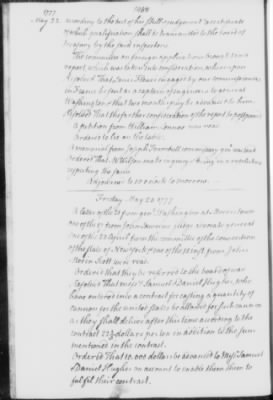 1777
May 22.
according to the best of his skill & judgment & a certificate
of which qualification shall be transmitted to the board of
treasury by the said inspectors.
The committee on foreign applications brought in a
report, which was taken into consideration, whereupon
Resolved That Louis Fleury engaged by our commissioners
in France be sent as a captain of engineers to general
Washington & that two months pay be advanced to him.
Resolved That the farther consideration of the report be postponed
A petition from William Connor was read
Ordered to lie on the table.
A memorial from Joseph Trumbull commissary genl was read
Ordered That Wilson make enquiry & bring in a resolution
respecting the same.
Adjourned to 10 o clock to morrow.
Friday May 23 1777
A letter of the 21 from genl Washington at Morris town
one of the 17 from John
one of the 20 from the committee of the convention
of the state of New york & one of the 12 inst. from John
Morin Scott were read.
Ordered that they be referred to the board of war
Resolved That messrs Samuel & Daniel Hughes, who
have entered into a contract for casting a quantity of
cannon for the united states be allowed for such cannon
as they shall deliver after this time according to the
contract 22⅔ dollars per ton in addition to the sum
mentioned in the contract.
Ordered That 10,000 dollars be advanced to Messrs Samuel
& Daniel Hughes on account to enable them to
fulfil their contract.